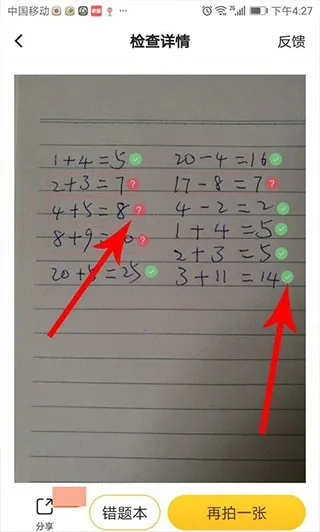 中国移动
下午4:27
检查详情
反馈
1+4=5
2+3=7
4+5=8
8+9=
20+5=25
20-4=16
17-8=7
4-2=2
1+4=5
2+3=5
3+11=14
分享
错题本
再拍一张